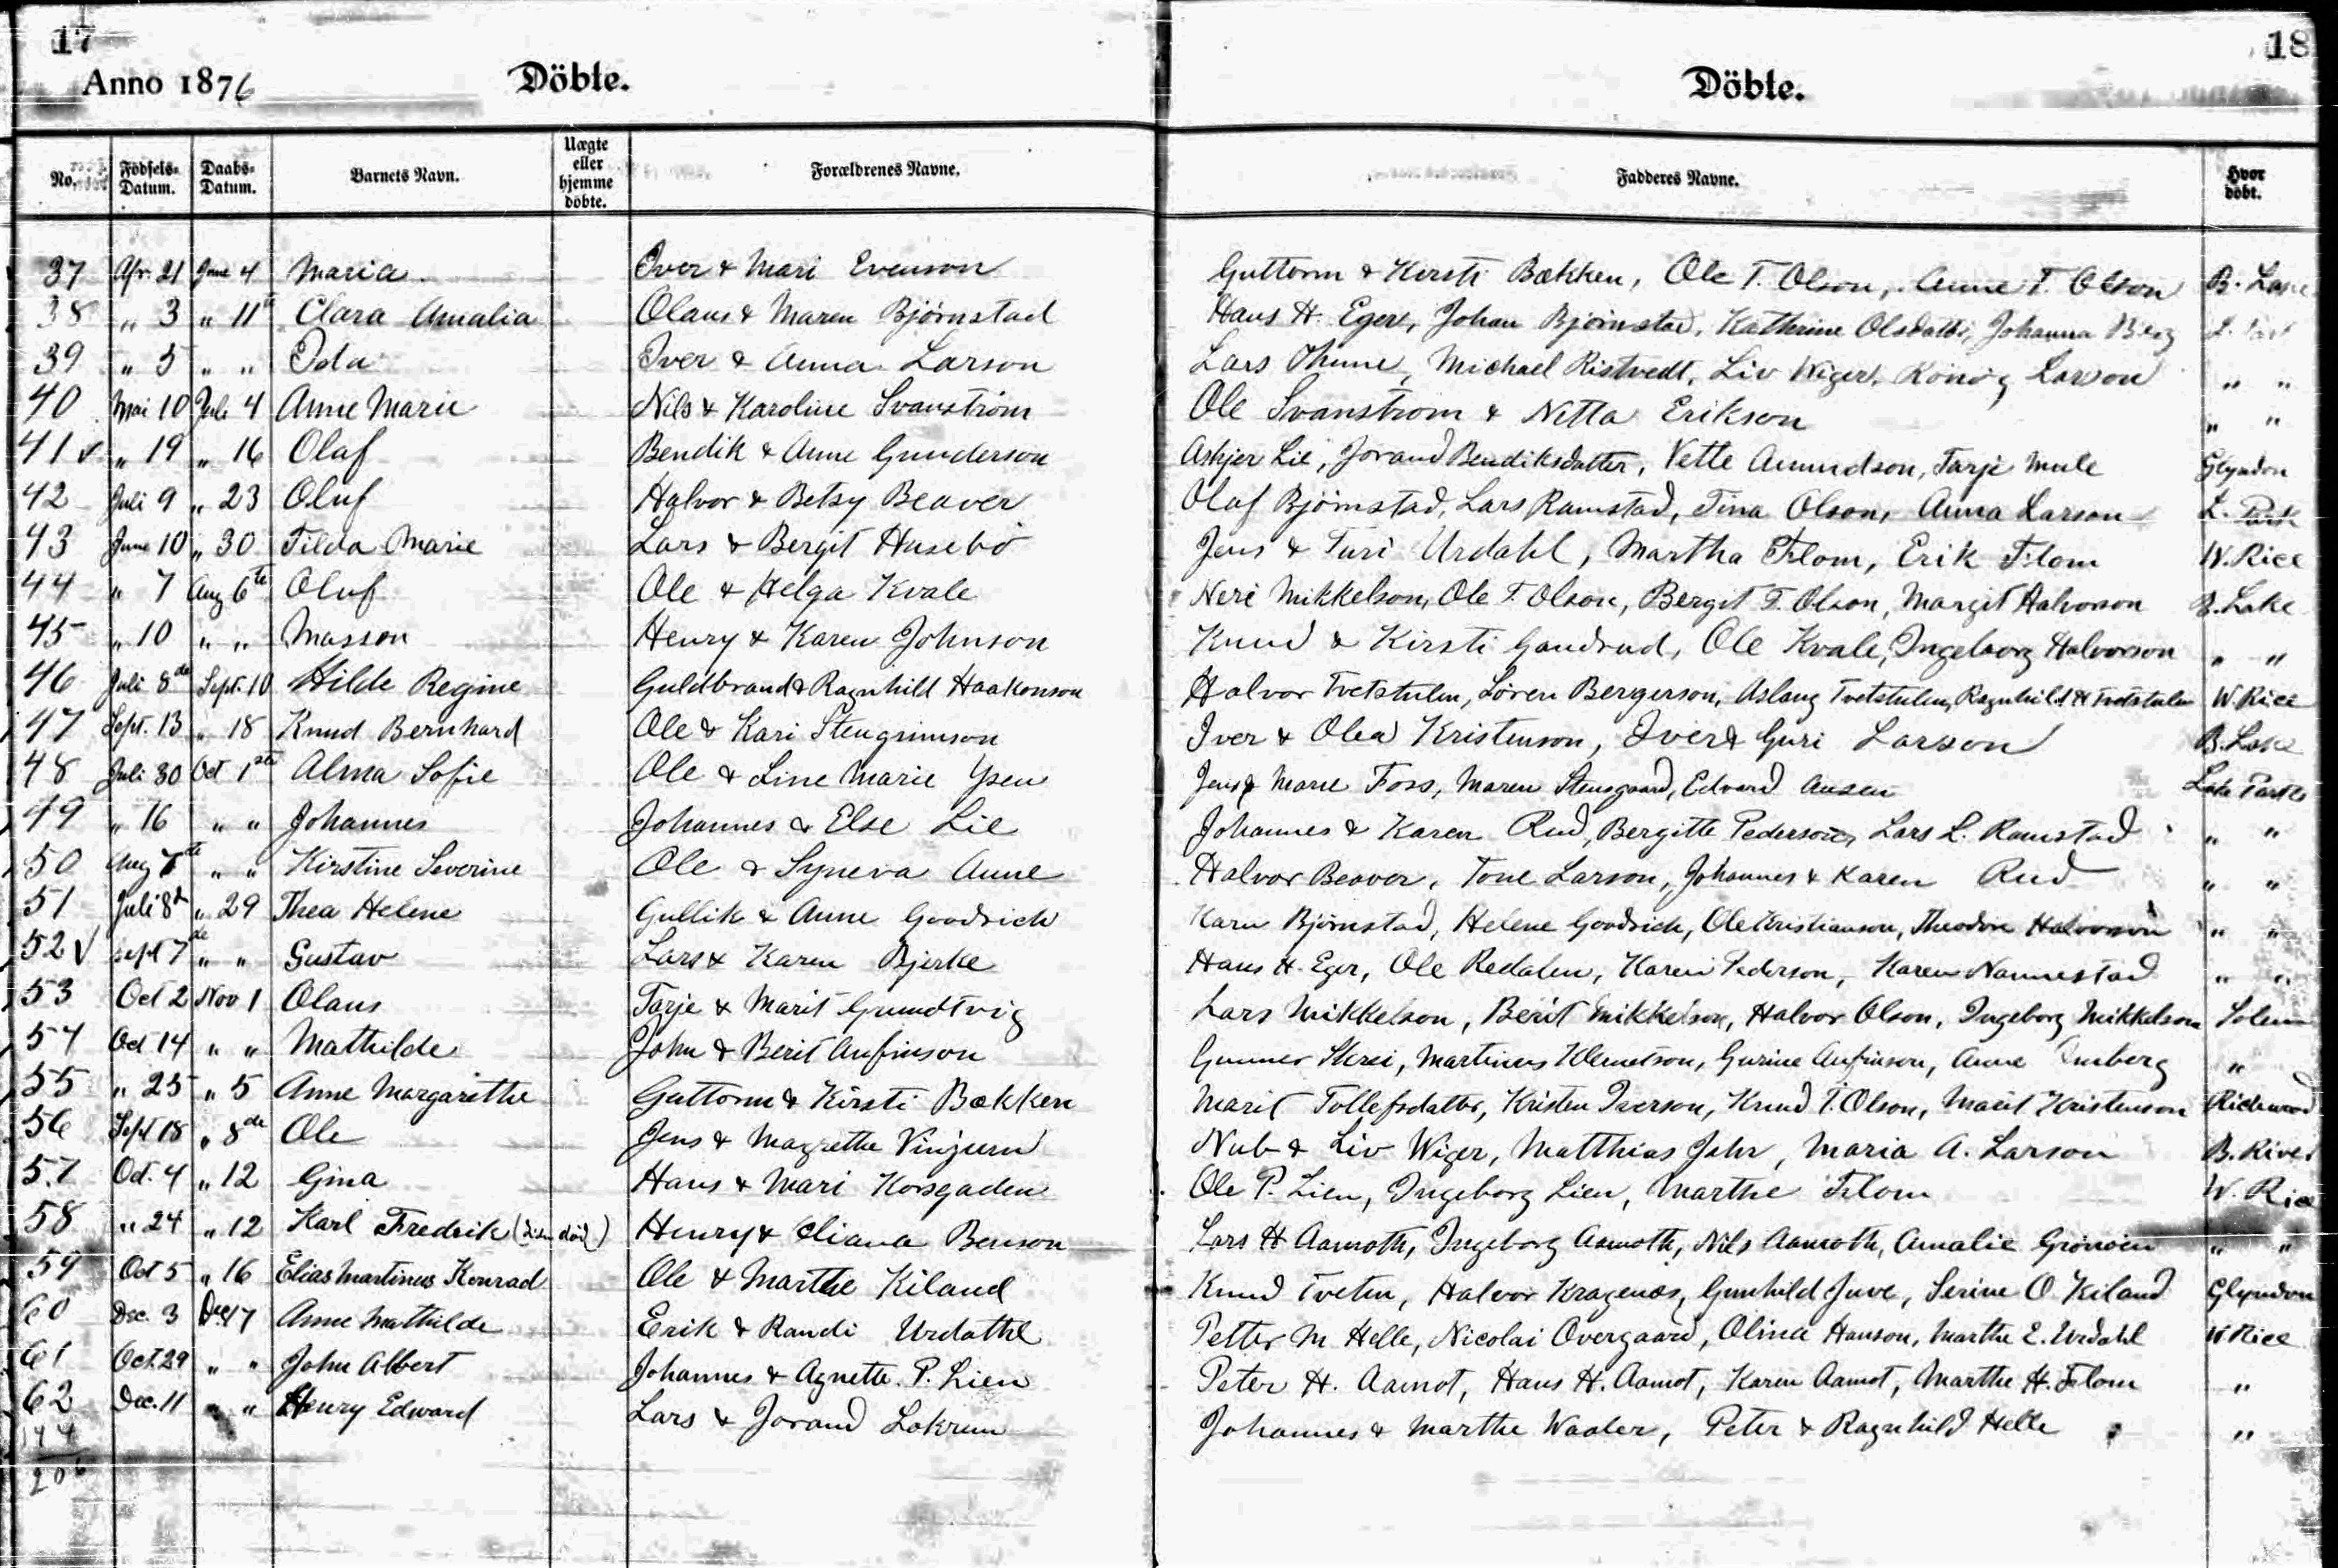 17
18
Anno 1876 Döbte. Döbte.
No. Födsels-Datum. Daabs-Datum. Barnets Navn. Uægte eller hjemme döbte. Forældrenes Navne. Fadderes Navne. Hvor döbt.
37 Apr. 21 June 4 Maria Iver & Mari Evenson Guttorm & Kersti Bækken, Ole T. Olson, Anne T. Olson B. Lake
38 " 3 " 11th Clara Amalia Olaus & Maren Bjørnstad Hans H. Eger, Johan Bjørnstad, Kathrine Olsdatter, Johanna Berg L. Park
39 " 5 " " Ida Iver & Anna Larson Lars Thune, Michael Ristvedt, Liv Wiger, Larson " "
40 Mai 10 Juli 4 Anne Marie Nils & Karoline Svanström Ole Svanstrom & Netta Erikson " "
41 ✓ " 19 " 16 Olaf Bendik & Anne Gunderson Askjer Lie, Jorand Bendiksdatter, Vette Amundson, Tarje Mule Glyndon
42 Juli 9 " 23 Oluf Halvor & Betsy Beaver Olaf Bjørnstad, Lars Ramstad, Tina Olson, Anna Larson L. Park
43 June 10 " 30 Tilda Marie Lars & Bergit Husebö Jens & Turi Urdahl, Martha Flom, Erik Flom W. Rice
44 " 7 Aug 6te Oluf Ole & Helga Kvale Neri Mikkelson, Ole T. Olson, Bergit T. Olson, Margit Halvorson B. Lake
45 " 10 " " Masson Henry & Karen Johnson Knud & Kirsti Gandrud, Ole Kvale, Ingeborg Halvorson " "
46 Juli 8de Sept. 10 Hilde Regine Guldbrand & Ragnhild Haakonson Halvor Tvetstulen, Sören Bergerson, Aslaug Tvetstulen, Ragnhild H Tvetstulen W. Rice
47 Sept. 13 " 18 Knud Bernhard Ole & Kari Stengrimson Iver & Olea Kristenson, Iver & Guri Larson B. Lake
48 Juli 30 Oct 1ste Alma Sofie Ole & Line Marie Ysen Jens & Marie Foss, Maren Stensgaard, Edvard Ansen Lake Park
49 " 16 " " Johannes Johannes & Else Lie Johannes & Karen Rud, Bergitte Pederson, Lars L. Ramstad " "
50 Aug 7te " " Kirstine Severine Ole & Syneva Aune Halvor Beaver, Tone Larson, Johannes & Karen Rud " "
51 Juli 8d " 29 Thea Helene Gullik & Anne Goodrich Karn Bjørnstad, Helene Goodrich, Ole Kristianson, Theodore Halvorson " "
52 ✓ Sept 7de " " Gustav Lars & Karen Bjerke Hans H. Eger, Ole Redalen, Karen Pederson, Karen Nannestad " "
53 Oct 2 Nov 1 Olaus Tarje & Marit Grundtvig Lars Mikkelson, Berit Mikkelson, Halvor Olson, Ingeborg Mikkelson Solem
54 Oct 14 " " Mathilde John & Berit Anfinson Gunner Skrei, Martinus Klemetson, Gurine Anfinson, Anne "
55 " 25 " 5 Anne Margarethe Guttorm & Kirsti Bækken Marit Tollefsdatter, Kristen Iverson, Knud T. Olson, Marit Kristenson Richwood
56 Sept 18 " 8de Ole Jens & Magrethe Vinjum Nub & Liv Wiger, Matthias Jahr, Maria A. Larson B. River
57 Oct. 4 " 12 Gina Hans & Mari Korsgaden Ole P. Lien, Ingeborg Lien, Marthe Flom W. Rice
58 " 24 " 12 Karl Fredrik ( död) Henry & Eliana Benson Lars H Aamoth, Ingeborg Aamoth, Nils Aamoth, Amalie Grönöien " "
59 Oct 5 " 16 Elias Martinus Konrad Ole & Marthe Kiland Knud Tveten, Halvor Kragenæs, Gunhild Juve, Serine O. Kiland Glyndon
60 Dec. 3 Dec 17 Anne Mathilde Erik & Randi Urdahl Petter M. Helle, Nicolai Overgaard, Olina Hanson, Marthe E. Urdahl W. Rice
61 Oct. 29 " " John Albert Johannes & Agnette P. Lien Peter H. Aamot, Hans H. Aamot, Karen Aamot, Marthe H. Flom "
62 Dec. 11 " " Henry Edward Lars & Jorand Lokrem Johannes & Marthe Waaler, Peter & Ragnhild Helle "
144
206